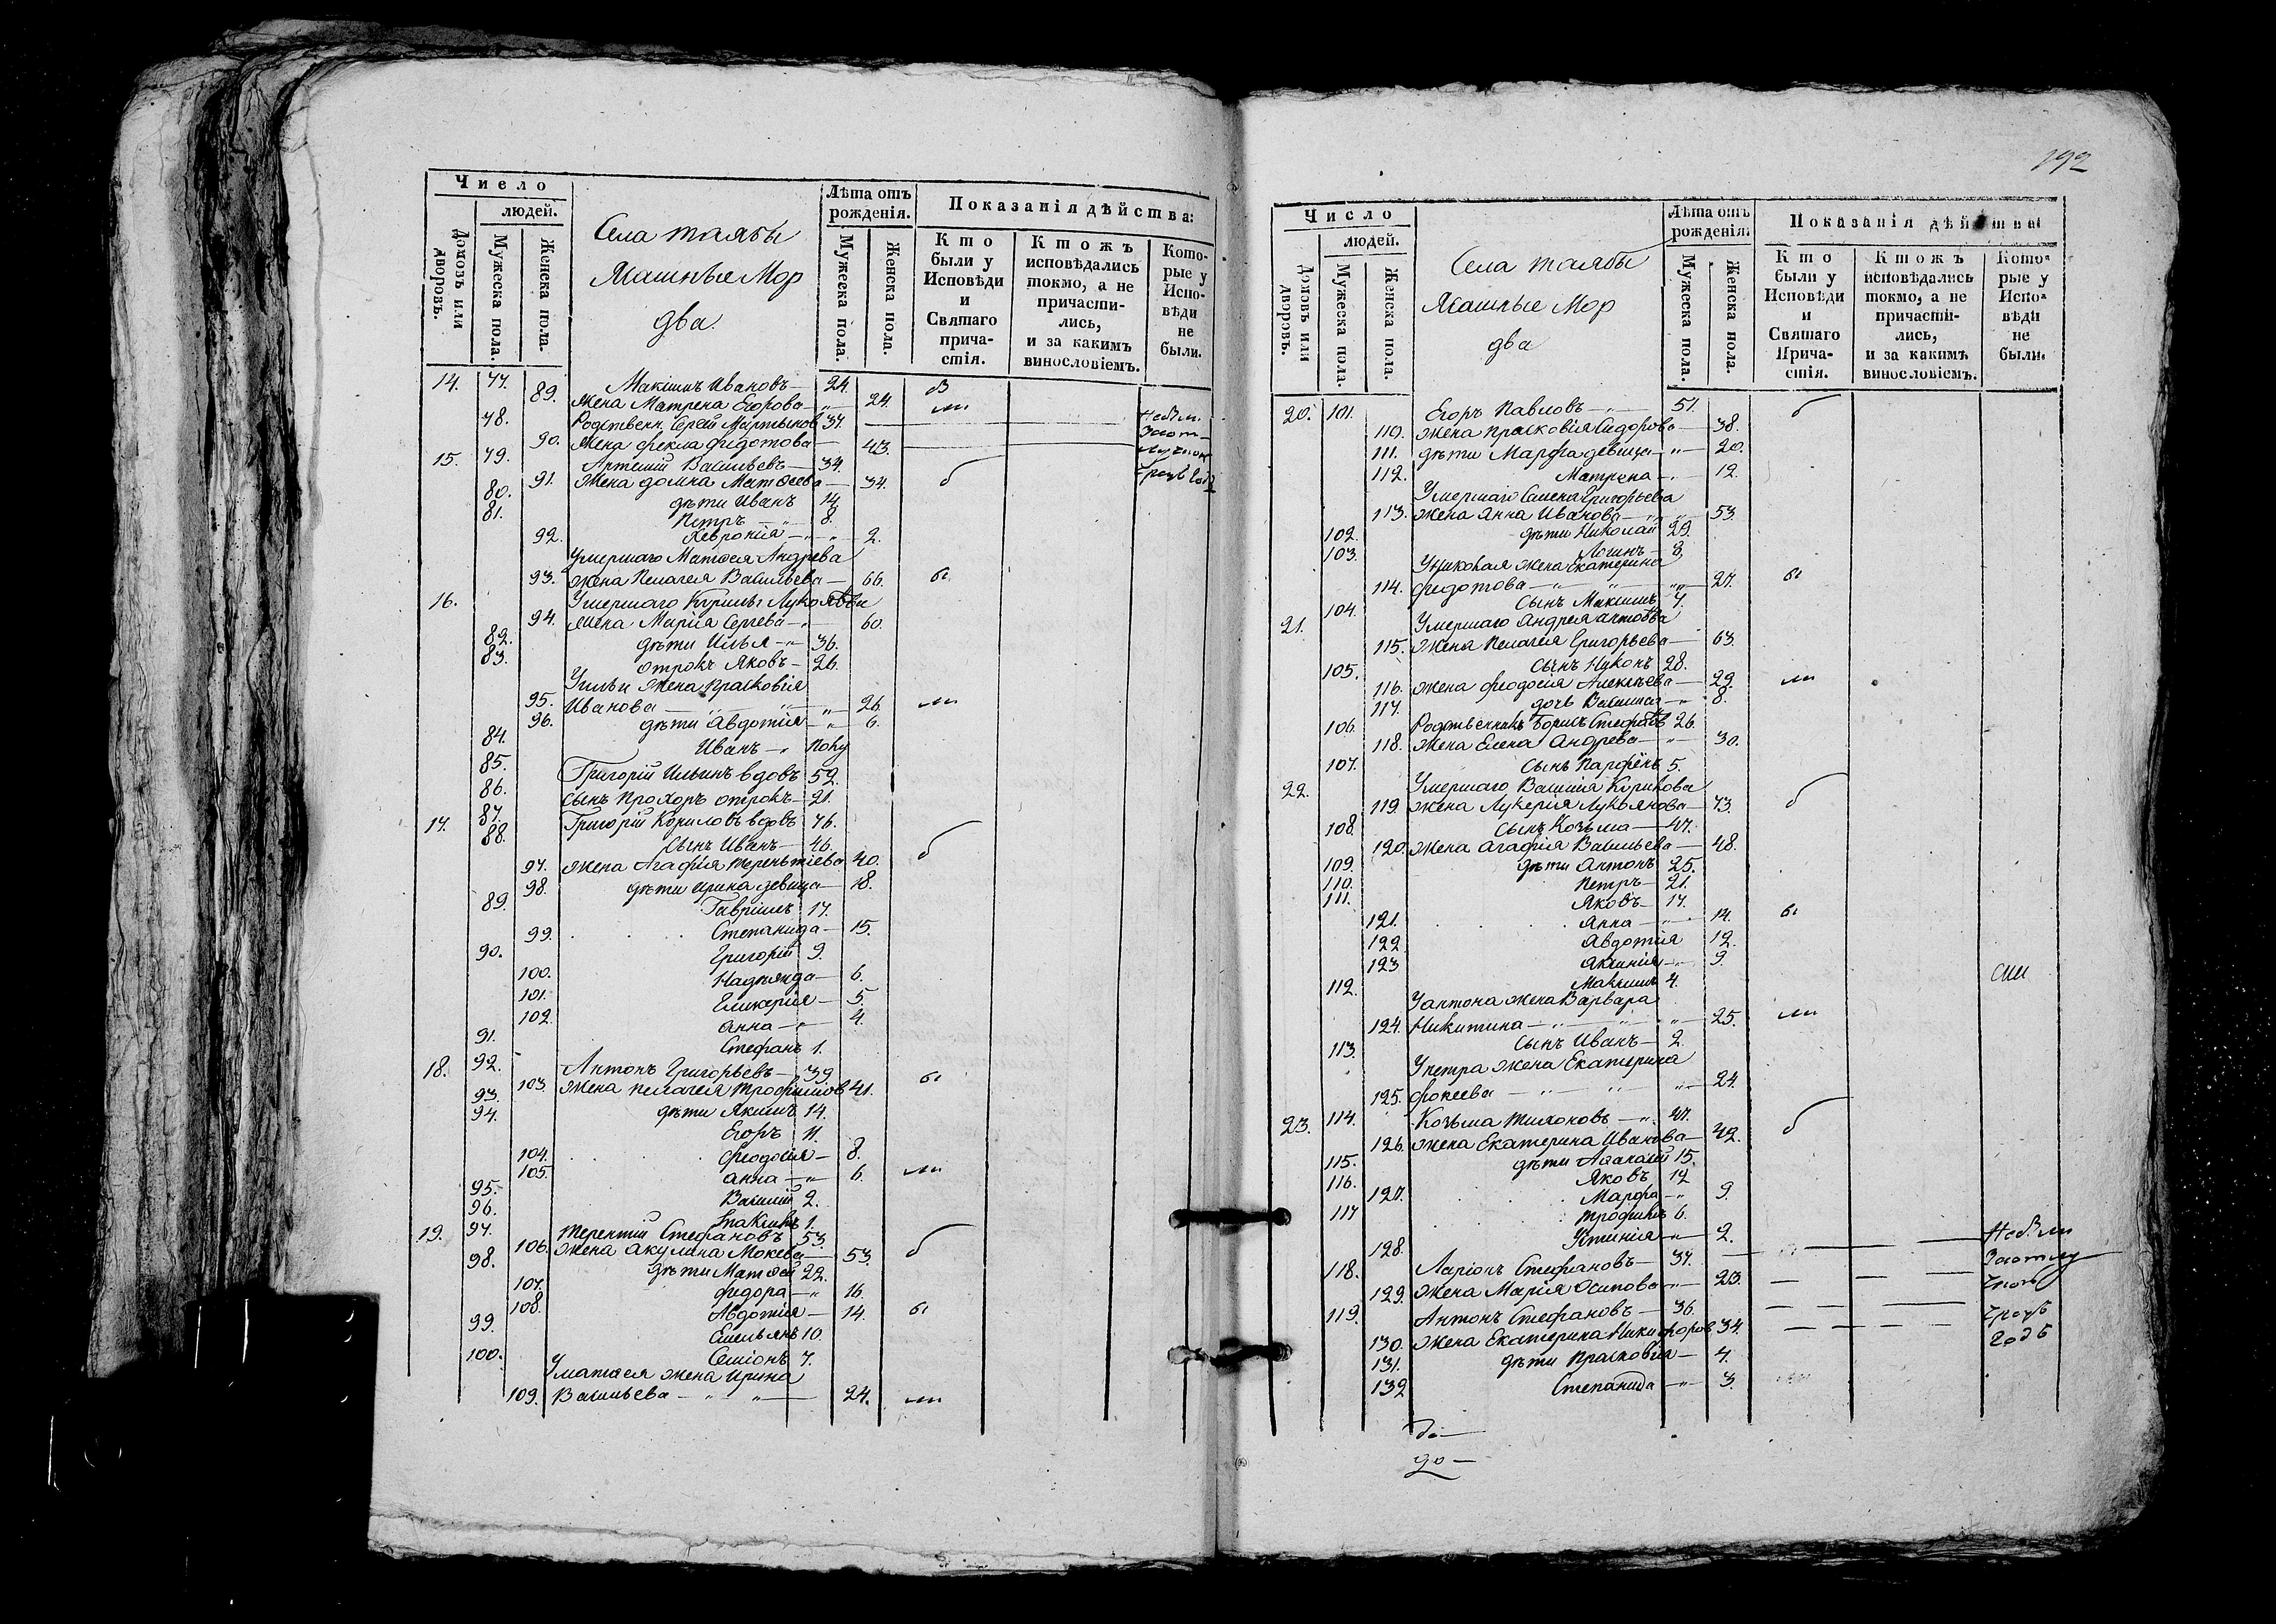 Число
людей.
Домовъ или дворовъ.
Мужеска пола.
Женска пола.
Села таябы
Ясашные Мор
два.
Лѣта отъ рожденія.
Мужеска пола.
Женска пола.
Показанія дѣйства:
Кто были у Исповѣди и Святаго причастія.
Ктожъ исповѣдались токмо, а не причастились, и за какимъ винословіемъ.
Которые у Исповѣди не были.
14. 77. Макsимъ Ивановъ — 24.
89. жена Матрена Егорова — 24.
78. Родственн. Сергей Мартынов 37.
90. жена Фекла Федотова — 43.
15. 79. Артемий Васильевъ — 34.
91. жена Домна Матвеева — 34.
80. дѣти Иванъ 14.
81. Петръ — 8.
92. Хеврония — 2.
Умершаго Матвея Андрева
93. жена Пелагея Васильева — 66.
16. Умершаго Кирилы Луколѣва
94. жена Мария Сергева — 60.
82. дѣти Илья — 36.
83. отрокъ Яковъ — 26.
Уильи жена Прасковія
95. Иванова — 26.
96. дѣти Авдотия — 6.
84. Иванъ —
85. Григорій Ильинъ вдовъ 52.
86. сынъ Прохоръ отрокъ — 21.
17. 87. Григорій Кориловъ вдовъ 76.
88. Сынъ Иванъ — 46.
97. жена Агафия Терентиева 40.
98. дѣти Ирина девица — 18.
89. Гаврiилъ 17.
99. Степанида — 15.
90. Григорій 9.
100. Надѣжда — 6.
101. Гликерия — 5.
102. Анна — 4.
91. Стефанъ 1.
18. 92. Антонъ Григорьевъ — 39
103 жена Пелагея Трофимов 41.
93. дѣти Якимъ 14.
94. Егоръ 11.
104. Феодосия — 8.
105. Анна — 6.
95. Василій 2.
96. 1.
19. 97. Терентій Стефановъ 53.
106. жена Акулина Мокева — 53.
98. дѣти Матвей 22.
107. Федора — 16.
108. Авдотия — 14.
99. Емельянъ 10.
100. Семионъ 7.
Уматвея жена Ирина
109. Васильева — 24.
192
Число
людей.
Домовъ или дворовъ.
Мужеска пола.
Женска пола.
Села таябы
Ясашные Мор
два
Лѣта отъ рожденія.
Мужеска пола.
Женска пола.
Показанія дѣйства
Кто были у Исповѣди и Святаго Причастія.
Ктожъ исповѣдались токмо, а не причастились, и за какимъ винословіемъ.
Которые у Исповѣди не были.
20. 101. Егоръ Павловъ — 51.
110. жена Прасковія Сидорова — 38.
111. дѣти Марфа девица — 20.
112. Матрена — 12.
Умершаго Семена Григорьева
113. жена Анна Иванова — 53.
102. дѣти Николай 29.
103. Логинъ — 8.
Униколая жена Екатерина
114. Федотова — 27.
104. Сынъ Максимъ 7.
21. Умершаго Андрея Антонова
115. жена Пелагея Григорьева — 63.
105. Сынъ Никонъ 28.
116. жена Феодосия Алексѣева — 29.
117. дочь Василиса — 8.
106. Родственникъ Борисъ Стефанов 26.
118. жена Елена Андрева — 30.
107. Сынъ Парфенъ 5.
22. Умершаго Василия Корнкова
119. жена Лукерия Лукоянова — 73.
108. Сынъ Козьма — 47.
120. жена Агафия Васильева — 48.
109. дѣти Антонъ 25.
110. Петръ — 21.
111. Яковъ — 17.
121. Анна — 14.
122 Авдотия 12.
123 Аксиния — 9.
112. Максимъ 4.
Уантона жена Варвара
124. Никитина — 25.
113. Сынъ Иванъ — 2.
Упетра жена Екатерина
125. Фокеева — 24.
23. 114. Козьма Тихоновъ — 47.
126. жена Екатерина Иванова — 42.
115. дѣти Афанасий 15.
116. Яковъ 12
127. Марфа — 9.
117 Трофимъ 6.
128. Устиния — 2.
118. Ларіонъ Стефановъ — 37.
129. жена Мария Осипова — 23.
119. Антонъ Стефановъ — 36.
130. жена Екатерина Никифоров 34.
131. дѣти Прасковія — 4.
132 Степанида — 3.